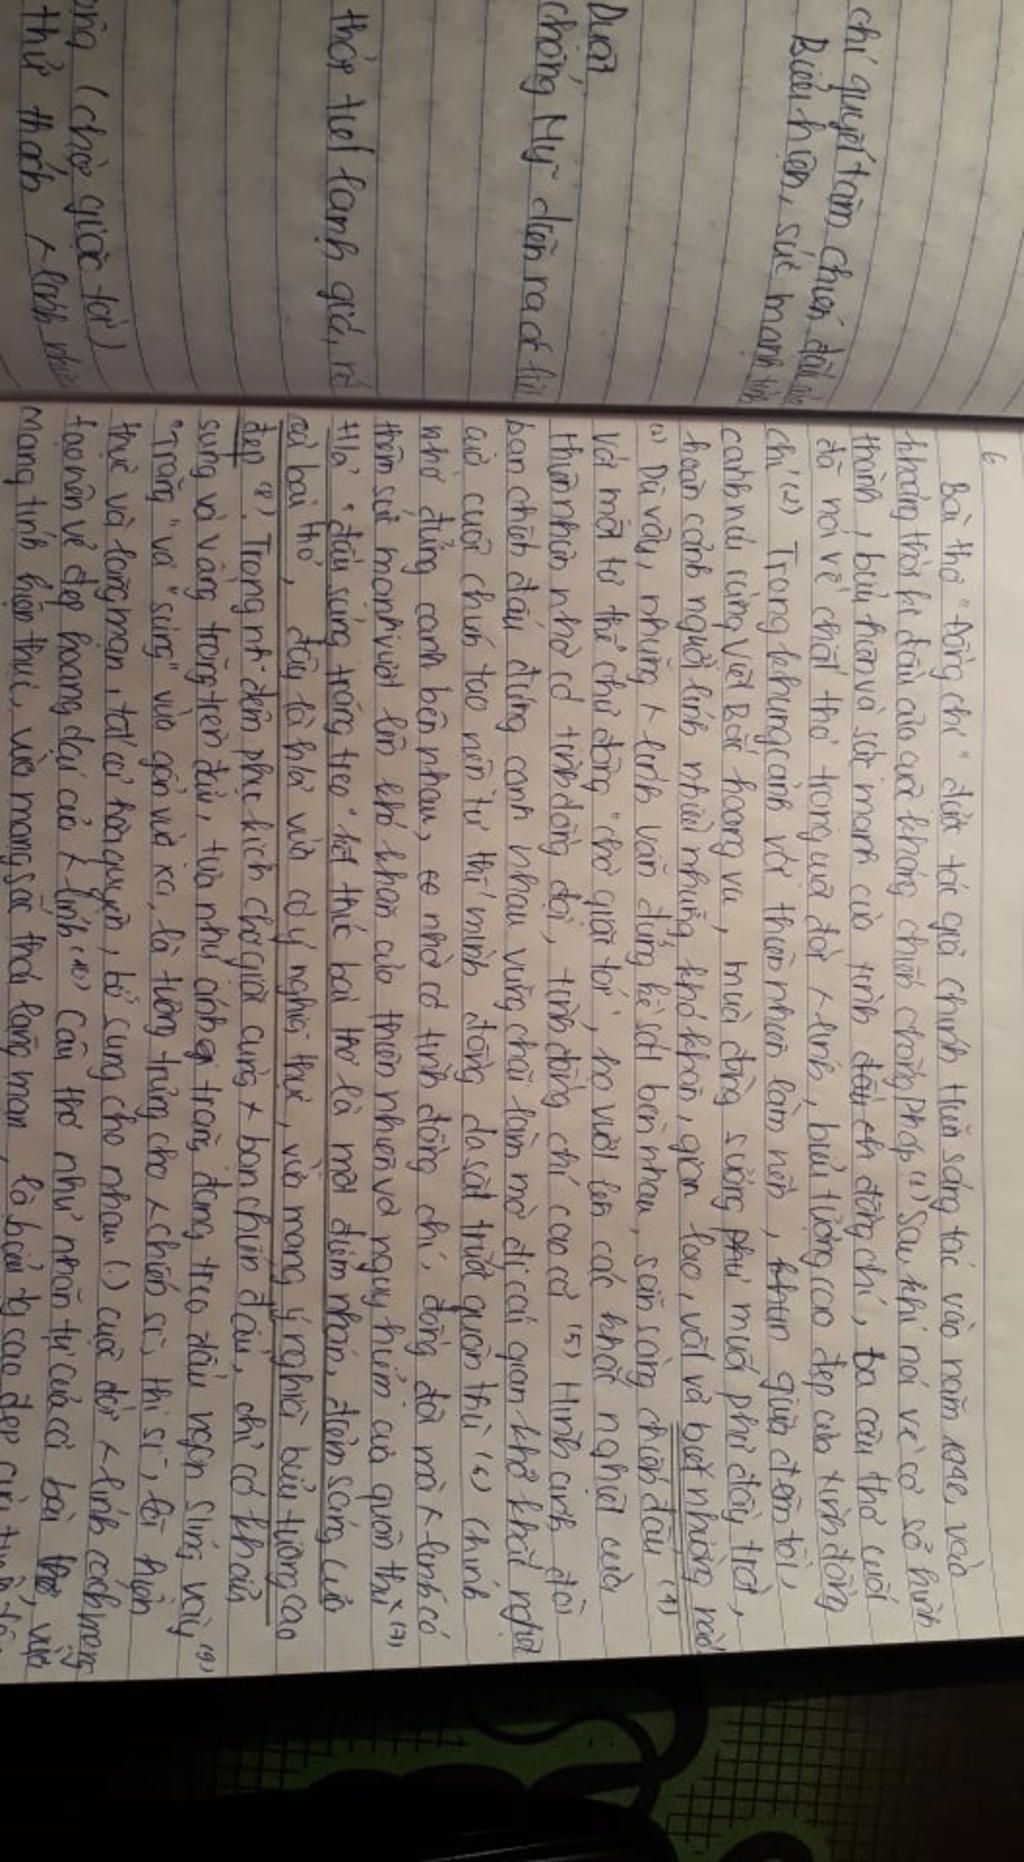 chí quyết tâm chiến đấu
Biểu hiện, sức mạnh tình
Duật
chống Mỹ diễn ra ác liệt
thời tiết lạnh giá, ré
(chờ giặc tới)
thử thách x lính
6
Bài thơ "Đồng chí" được tác giả Chính Hữu sáng tác vào năm 1948, vào
khoảng thời kì đầu của cuộc kháng chiến chống Pháp (1) Sau khi nói về cơ sở hình
thành, biểu hiện và sức mạnh của tình đồng chí, ba câu thơ cuối
đã nói về chất thơ trong cuộc đời x lính, biểu tượng cao đẹp của tình đồng
chí (2) Trong khung cảnh với thiên nhiên làm nền, giữa đêm tối,
cảnh núi rừng Việt Bắc hoang vu, mùa đông sương muối phủ đầy trời,
hoàn cảnh người lính nhiều những khó khăn, gian lao, vất vả biết nhường nào
Dù vậy, những x lính vẫn đứng kề sát bên nhau, sẵn sàng chiến đấu (4)
Với một tư thế chủ động "chờ giặc tới", họ vượt lên các khắc nghiệt của
thiên nhiên nhờ có tình đồng đội, tình đồng chí cao cả (5) Hình ảnh đôi
bạn chiến đấu đứng cạnh nhau vững chãi làm mờ đi cái gian khổ khắc nghiệt
của cuộc chiến tạo nên tư thế mình đồng da sắt trước quân thù (6) Chính
nhờ đứng cạnh bên nhau, nhờ có tình đồng chí, đồng đội mà x lính có
thêm sức mạnh vượt lên khó khăn của thiên nhiên và nguy hiểm của quân thù (7)
H/a "đầu súng trăng treo" kết thúc bài thơ là một điểm nhấn, điểm sáng của
cả bài thơ, đây là h/a vừa có ý nghĩa thực, vừa mang ý nghĩa biểu tượng cao
đẹp (8). Trong n~ đêm phục kích chờ giặc cùng x bạn chiến đấu, chỉ có khẩu
súng và vầng trăng trên đầu, tựa như ánh trăng đang treo đầu ngọn súng vậy (9)
"Trăng" và "súng" vừa gần vừa xa, là tượng trưng cho x chiến sĩ, thi sĩ, là hiện
thực và lãng mạn, tất cả hòa quyện, bổ sung cho nhau () cuộc đời x lính cách mạng
tạo nên vẻ đẹp hoang dại của x lính (10) Câu thơ như nhãn tự của cả bài thơ, vừa
mang tính hiện thực, vừa mang sắc thái lãng mạn, là biểu tg cao đẹp của tình